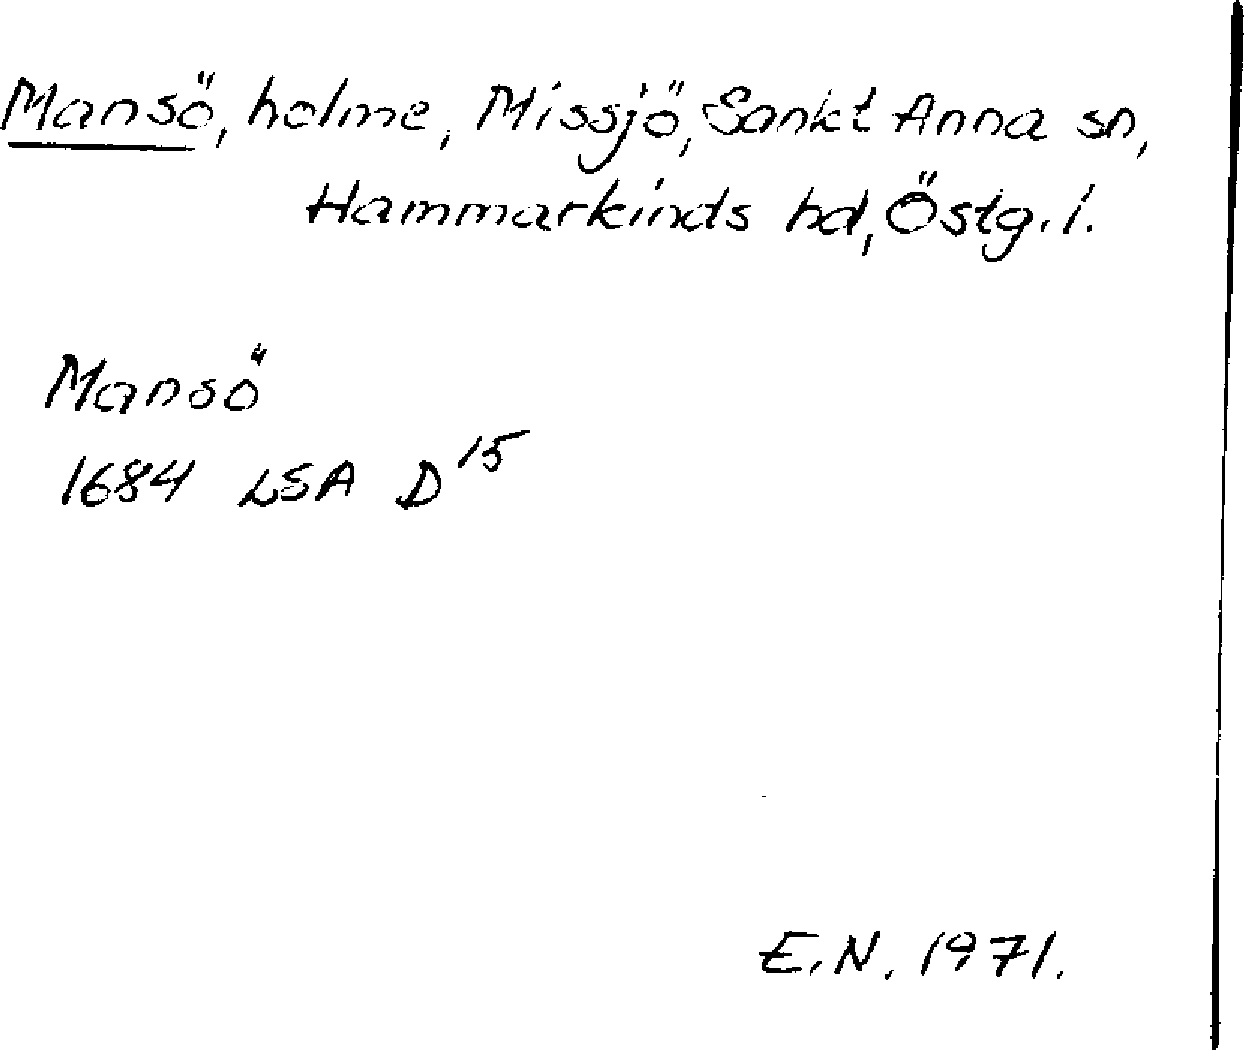 Mansö, holme, Missjö, Sankt Anna sn,
Hammarkinds hd, Östg. l.
Mansö
1684 LSA D 15
E. N. 1971.